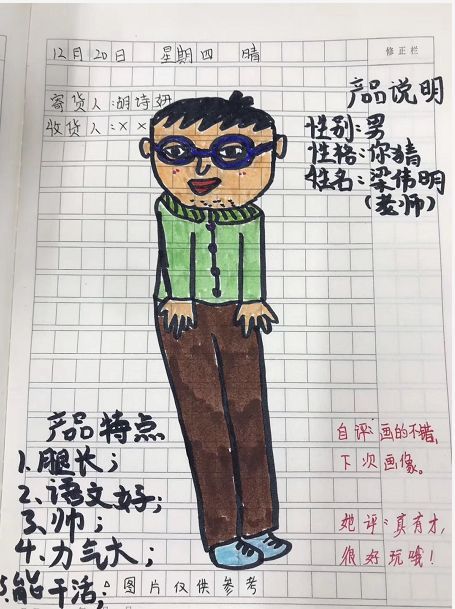 12月20日 星期四 晴
修正栏
寄货人:胡诗妍
收货人:××
产品说明
性别:男
性格:你猜
姓名:梁伟明
(老师)
产品特点
1、腿长;
2、语文好;
3、帅;
4、力气大;
5、能干活;
图片仅供参考
自评:画的不错,
下次画像。
她评:真有才,
很好玩哦!